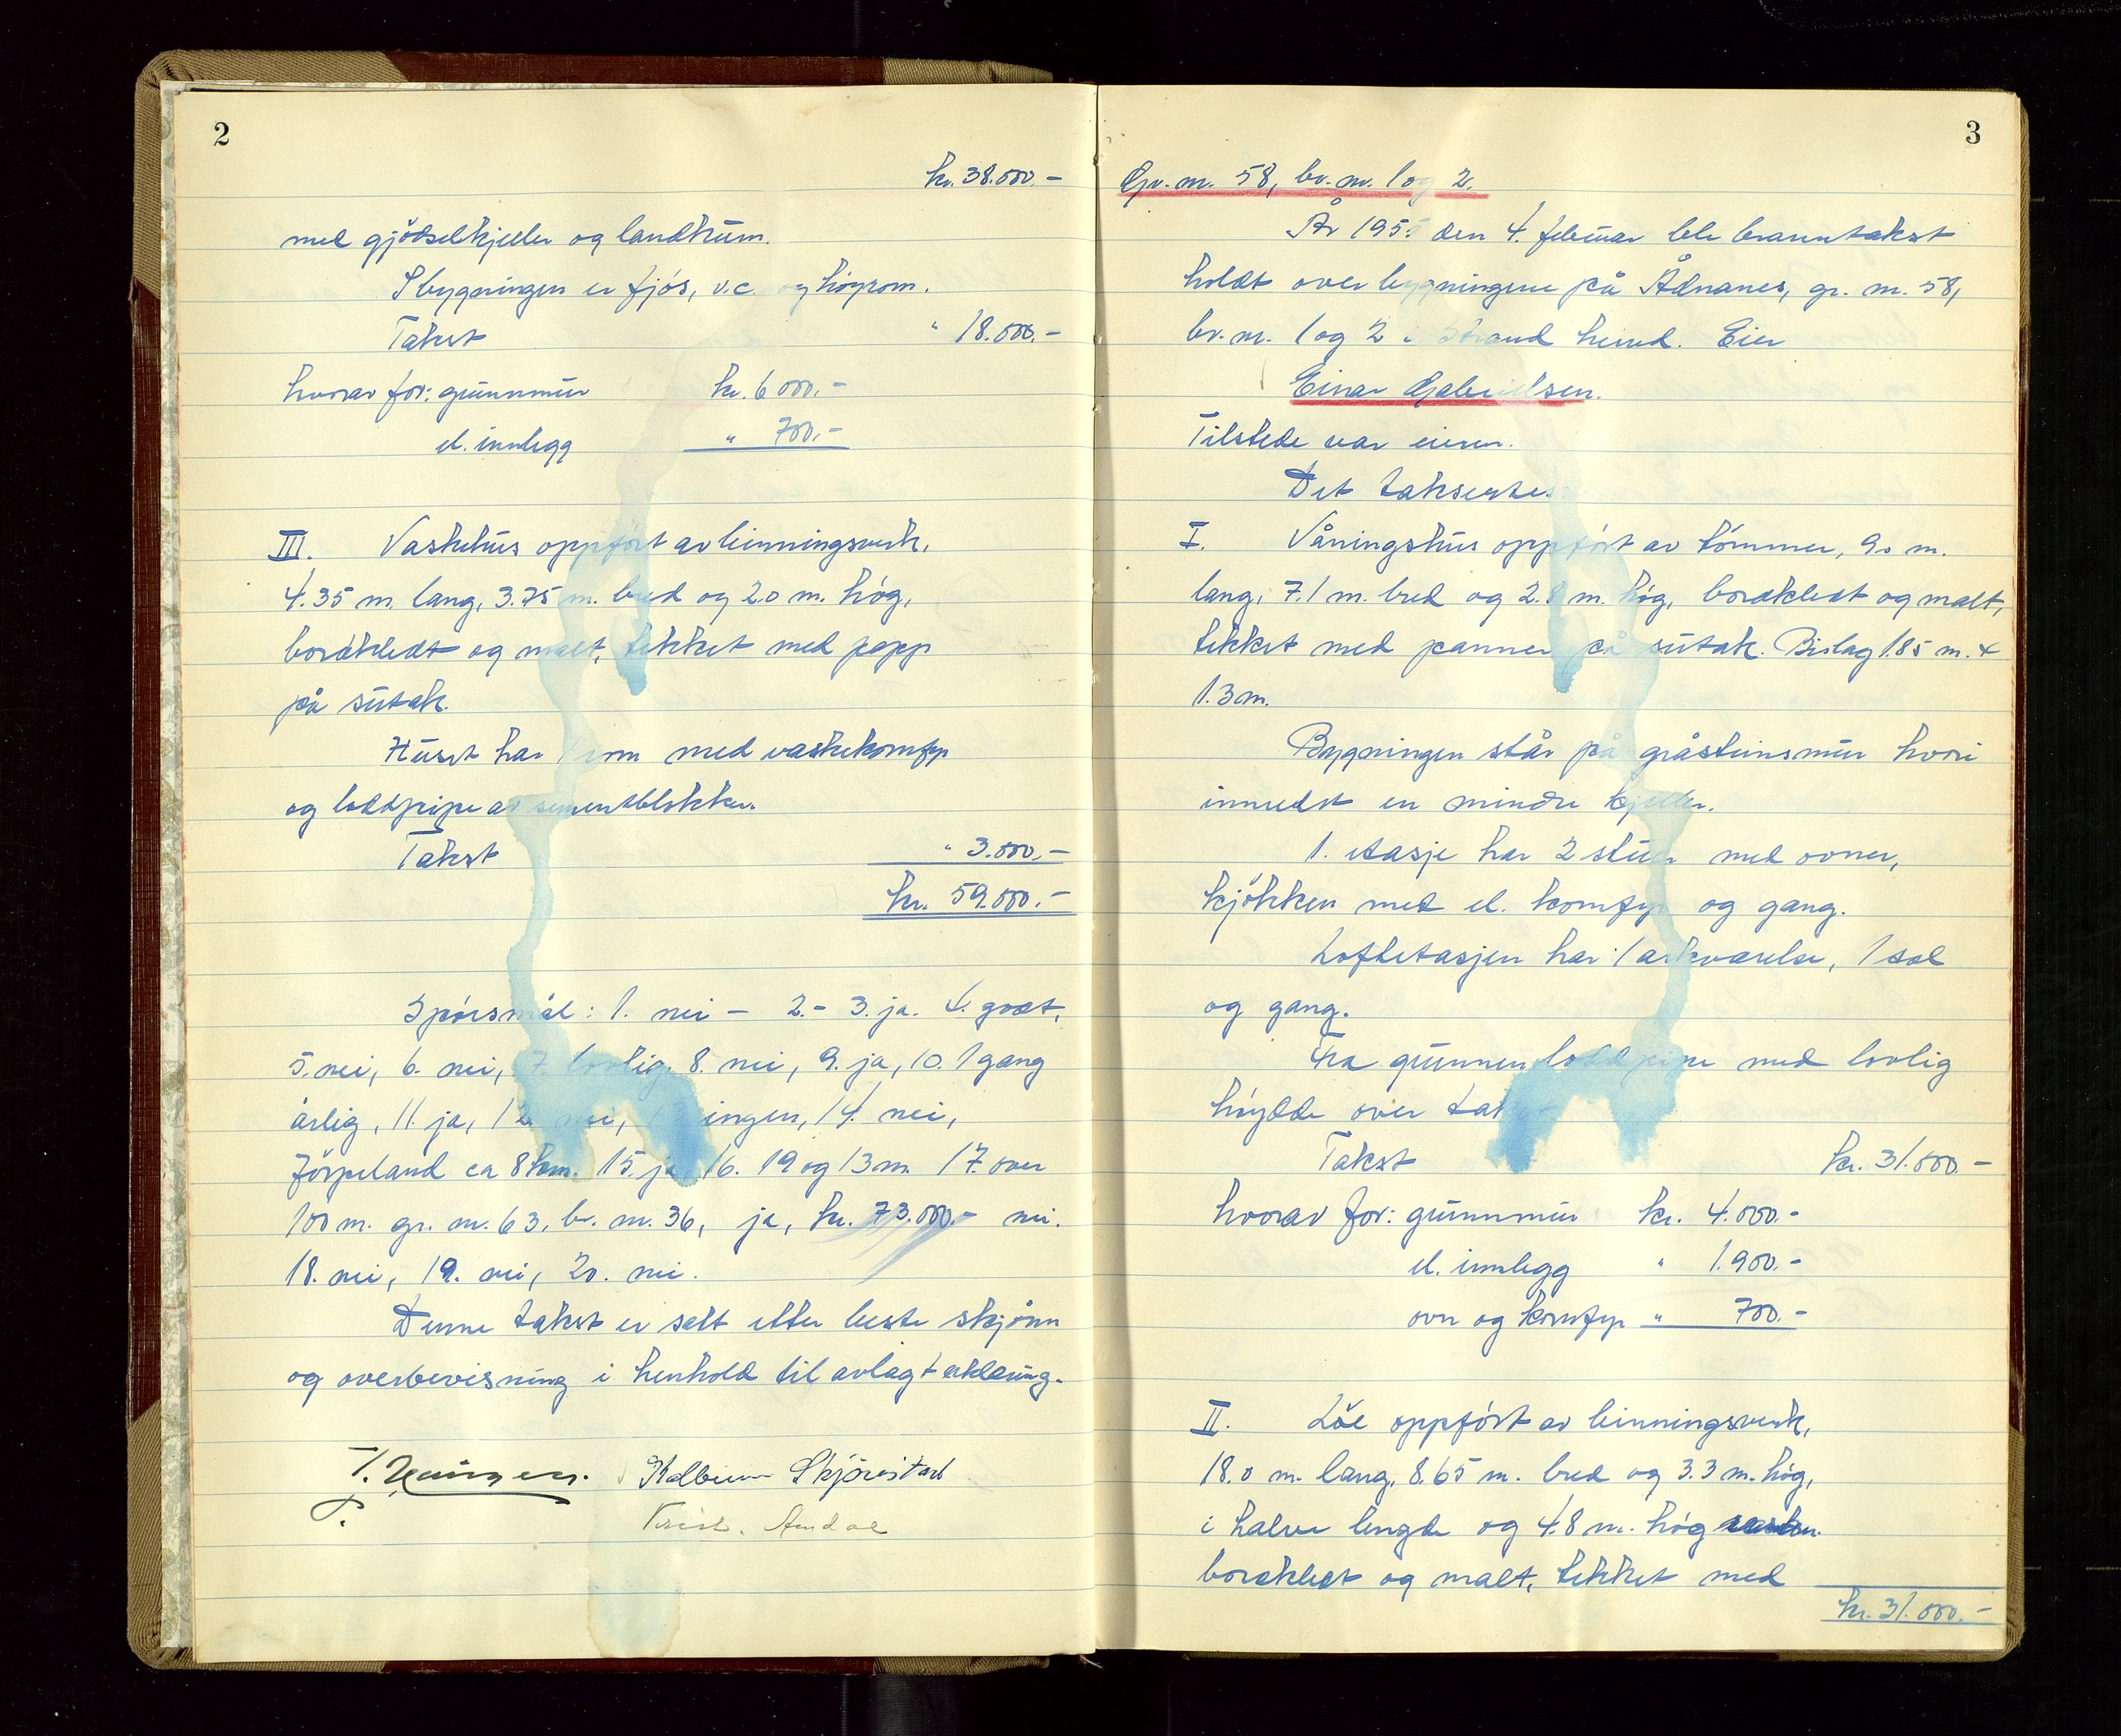 2
kr. 38.000.-
med gjödselkjeller og landkum.
I bygningen er fjós, v.c. og höyrom.
Takst " 18.000.-
hvorav for: grunnmur kr. 6000.-
el. innlegg " 700.-
III. Vaskehus oppfört av binningsverk,
4.35 m. lang, 3.75 m. bred og 2.0 m. hög,
bordkledt og malt, tekket med papp
på sutak.
Huset har 1 rom med vaskekomfyr
og loddpipe av sementblokker.
Takst " 3.000.-
kr. 59.000.-
Spörsmål: 1. nei - 2.- 3. ja. 4. godt,
5. nei, 6. nei, 7. lovlig. 8. nei, 9. ja, 10. 1 gang
årlig, 11. ja, 12. nei, 13. ingen, 14. nei,
Jörpeland ca 8 km. 15. ja 16. 19 og 13 m. 17. over
100 m. gr. nr. 63, br. nr. 36, ja, kr. 73.000.- nei.
18. nei, 19. nei, 20. nei.
Denne takst er satt etter beste skjönn
og overbevisning i henhold til avlagt erklæring.
Kolbein Skjörestad
3
Gr. nr. 58, br. nr. 1 og 2.
År 195 den 4. februar ble branntakst
holdt over bygningene på Ådnanes, gr. nr. 58,
br. nr. 1 og 2 i Strand herred. Eier
Einar Gabrielsen.
Tilstede var eieren.
Det taksertes
I. Våningshus oppfört av tömmer, 9.0 m.
lang, 7.1 m. bred og 2.8 m. hög, bordkledt og malt,
tekket med panner på sutak. Bislag 1.85 m. x
1.3 m.
Bygningen står på gråsteinsmur hvori
innredet en mindre kjeller.
1. etasje har 2 stuer med ovner,
kjökken med el. komfyr og gang.
Loftetasjen har 1 arkværelse, 1 sal
og gang.
Fra grunnen loddpipe med lovlig
höydde over taket
Takst kr. 31.000.-
hvorav for: grunnmur kr. 4.000.-
el. innlegg " 1.900.-
ovn og komfyr " 700.-
II. Löe oppfört av binningsverk,
18.0 m. lang, 8.65 m. bred og 3.3 m. hög,
i halve lengde og 4.8 m. hög resten.
bordkledt og malt, tekket med
kr. 31.000.-